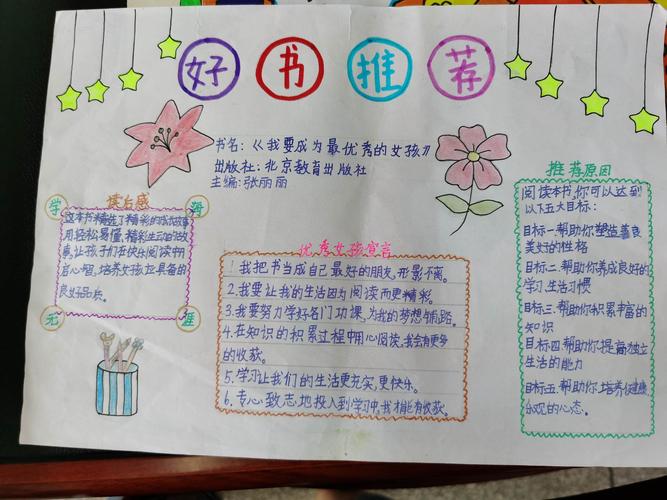 好书推荐
书名:《我要成为最优秀的女孩》
出版社:北京教育出版社
主编:张丽丽
学海无涯
读后感
这本书精选了精彩的成长故事
用轻松易懂,精彩生动的故
事,让孩子们在快乐阅读中
培养女孩应具备的
良好品质
优秀女孩宣言
1.我把书当成自己最好的朋友,形影不离。
2.我要让我的生活因为阅读而更精彩。
3.我要努力学好各门功课,为我的梦想铺路。
4.在知识的积累过程中用心阅读,我会有更多
的收获。
5.学习让我们的生活更充实,更快乐。
6.专心致志地投入到学习中,我才能有收获。
推荐原因
阅读本书,你可以达到
以下五大目标:
目标一.帮助你塑造善良
美好的性格
目标二.帮助你养成良好的
学习.生活习惯
目标三.帮助你积累丰富的
知识
目标四.帮助你提高独立
生活的能力
目标五.帮助你培养健康
乐观的心态。